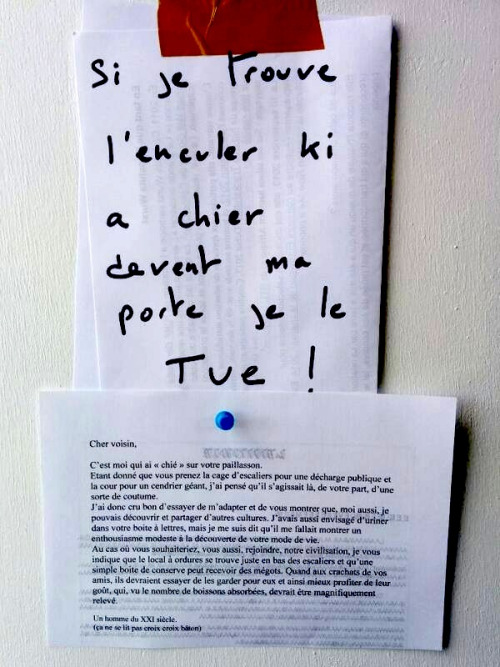 Si je trouve
l'enculer ki
a chier
devent ma
porte je le
Tue !
Cher voisin,
C'est moi qui ai « chié » sur votre paillasson.
Etant donné que vous prenez la cage d'escaliers pour une décharge publique et
la cour pour un cendrier géant, j'ai pensé qu'il s'agissait là, de votre part, d'une
sorte de coutume.
J'ai donc cru bon d'essayer de m'adapter et de vous montrer que, moi aussi, je
pouvais découvrir et partager d'autres cultures. J'avais aussi envisagé d'uriner
dans votre boite à lettres, mais je me suis dit qu'il me fallait montrer un
enthousiasme modeste à la découverte de votre mode de vie.
Au cas où vous souhaiteriez, vous aussi, rejoindre, notre civilisation, je vous
indique que le local à ordures se trouve juste en bas des escaliers et qu'une
simple boite de conserve peut recevoir des mégots. Quand aux crachats de vos
amis, ils devraient essayer de les garder pour eux et ainsi mieux profiter de leur
goût, qui, vu le nombre de boissons absorbées, devrait être magnifiquement
relevé.
Un homme du XXI siècle.
(ça ne se lit pas croix croix bâton)